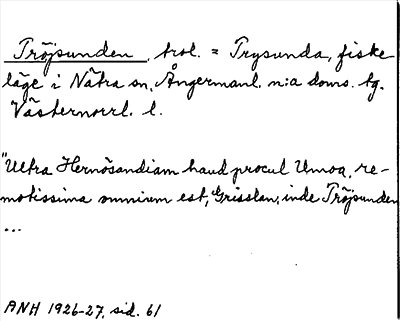 Tröjsunden, trol. = Trysunda, fiske-
läge i Nätra sn, Ångermanl. n:a doms. tg.
Västernorrl. l.
"Ultra Hernösandiam haud procul Umoa, re-
motissima omnium est, Grisslan; inde Tröjsunden
...
ANH 1926-27, sid. 61